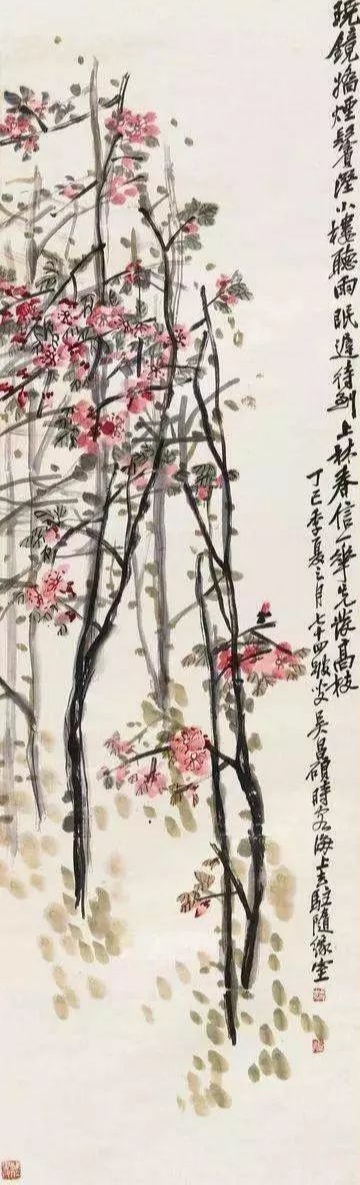 曉鏡煙鬢小樓聽雨眠遲待到上林春信一華先高枝
丁巳季夏月七十四歲叟吳昌碩時客海上去駐隨緣室